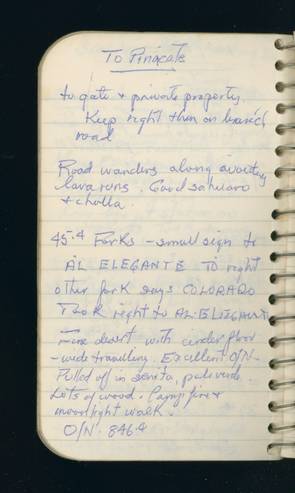 To Pinacate
to gate & private property.
Keep right then on
road
Road wanders along
lava runs. Good sahuaro
& cholla.
45.4 Forks - small sign to
AL ELEGANTE TO right
other fork says COLORADO
Took right to AL ELEGANTE
Fine desert with cinder floor
- wide traveling. Excellent O/N -
Pulled off in senita, palo verde.
Lots of wood. Camp fire &
moonlight walk.
O/N. 846.4